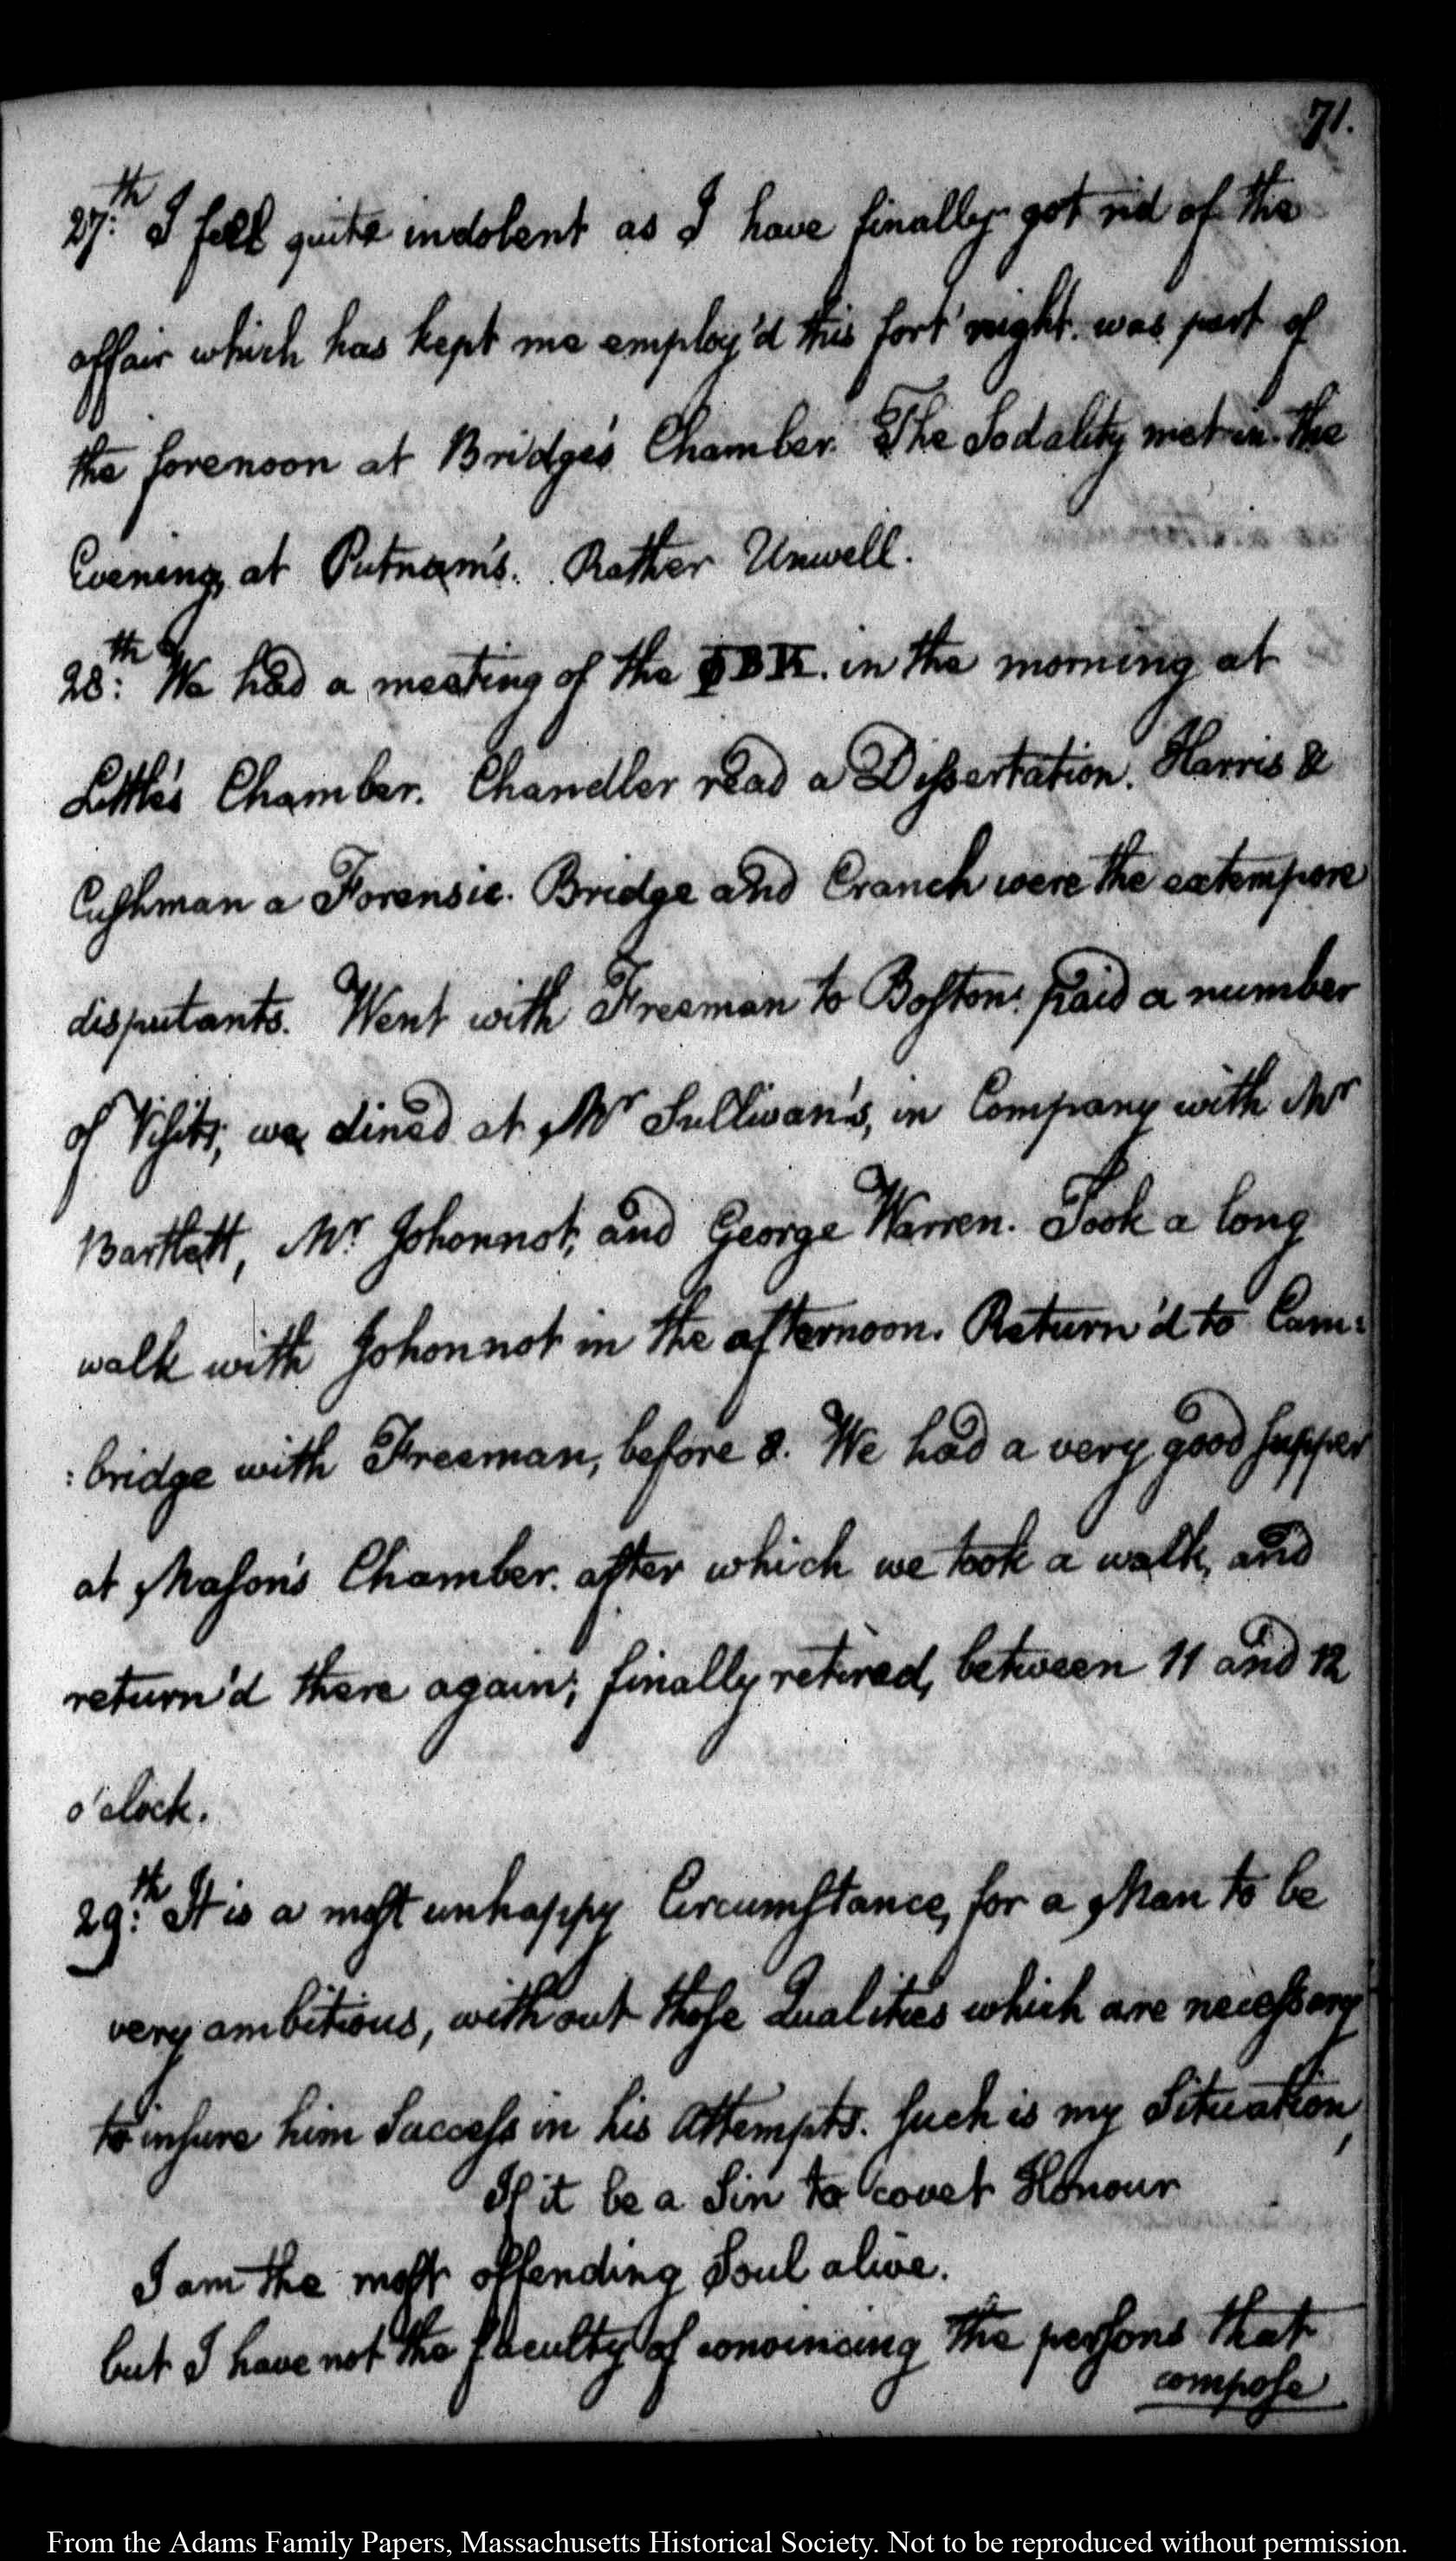 71.
27:th I feel quite indolent as I have finally got rid of the
affair which has kept me employ'd this fort'night. was part of
the forenoon at Bridge's Chamber. The Sodality met in the
Evening, at Putnam's. Rather Unwell.
28:th We had a meeting of the ΦBK. in the morning at
Little's Chamber. Chandler read a Dissertation. Harris &
Cushman a Forensic. Bridge and Cranch were the extempore
disputants. Went with Freeman to Boston: paid a number
of Visits; we dined at Mr Sullivan's, in Company with Mr
Bartlett, Mr. Johonnot, and George Warren. Took a long
walk with Johonnot in the afternoon. Return'd to Cam:
:bridge with Freeman, before 8. We had a very good supper
at Mason's Chamber. after which we took a walk, and
return'd there again; finally retired, between 11 and 12
o'clock.
29:th It is a most unhappy Circumstance, for a Man to be
very ambitious, without those Qualities which are necessary
to insure him Success in his Attempts. Such is my Situation,
If it be a Sin to covet Honour
I am the most offending Soul alive.
but I have not the faculty of convincing the persons that
compose
From the Adams Family Papers, Massachusetts Historical Society. Not to be reproduced without permission.